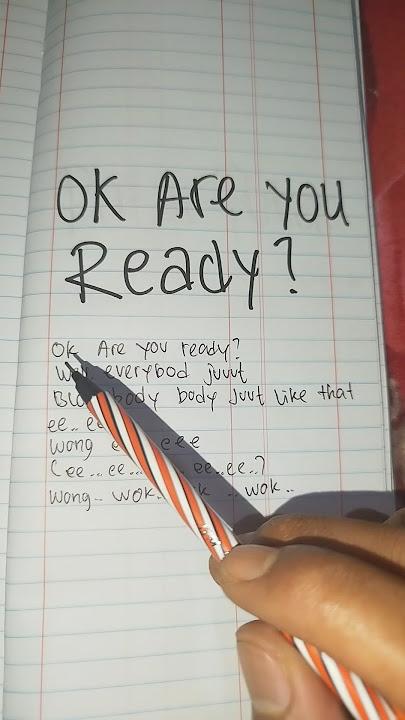 OK Are You
Ready?
Ok Are you ready?
everybod juuut
body body Juut like that
ee..
wong eee
(ee...ee... ee..ee..?
Wong.. wok.. wok..